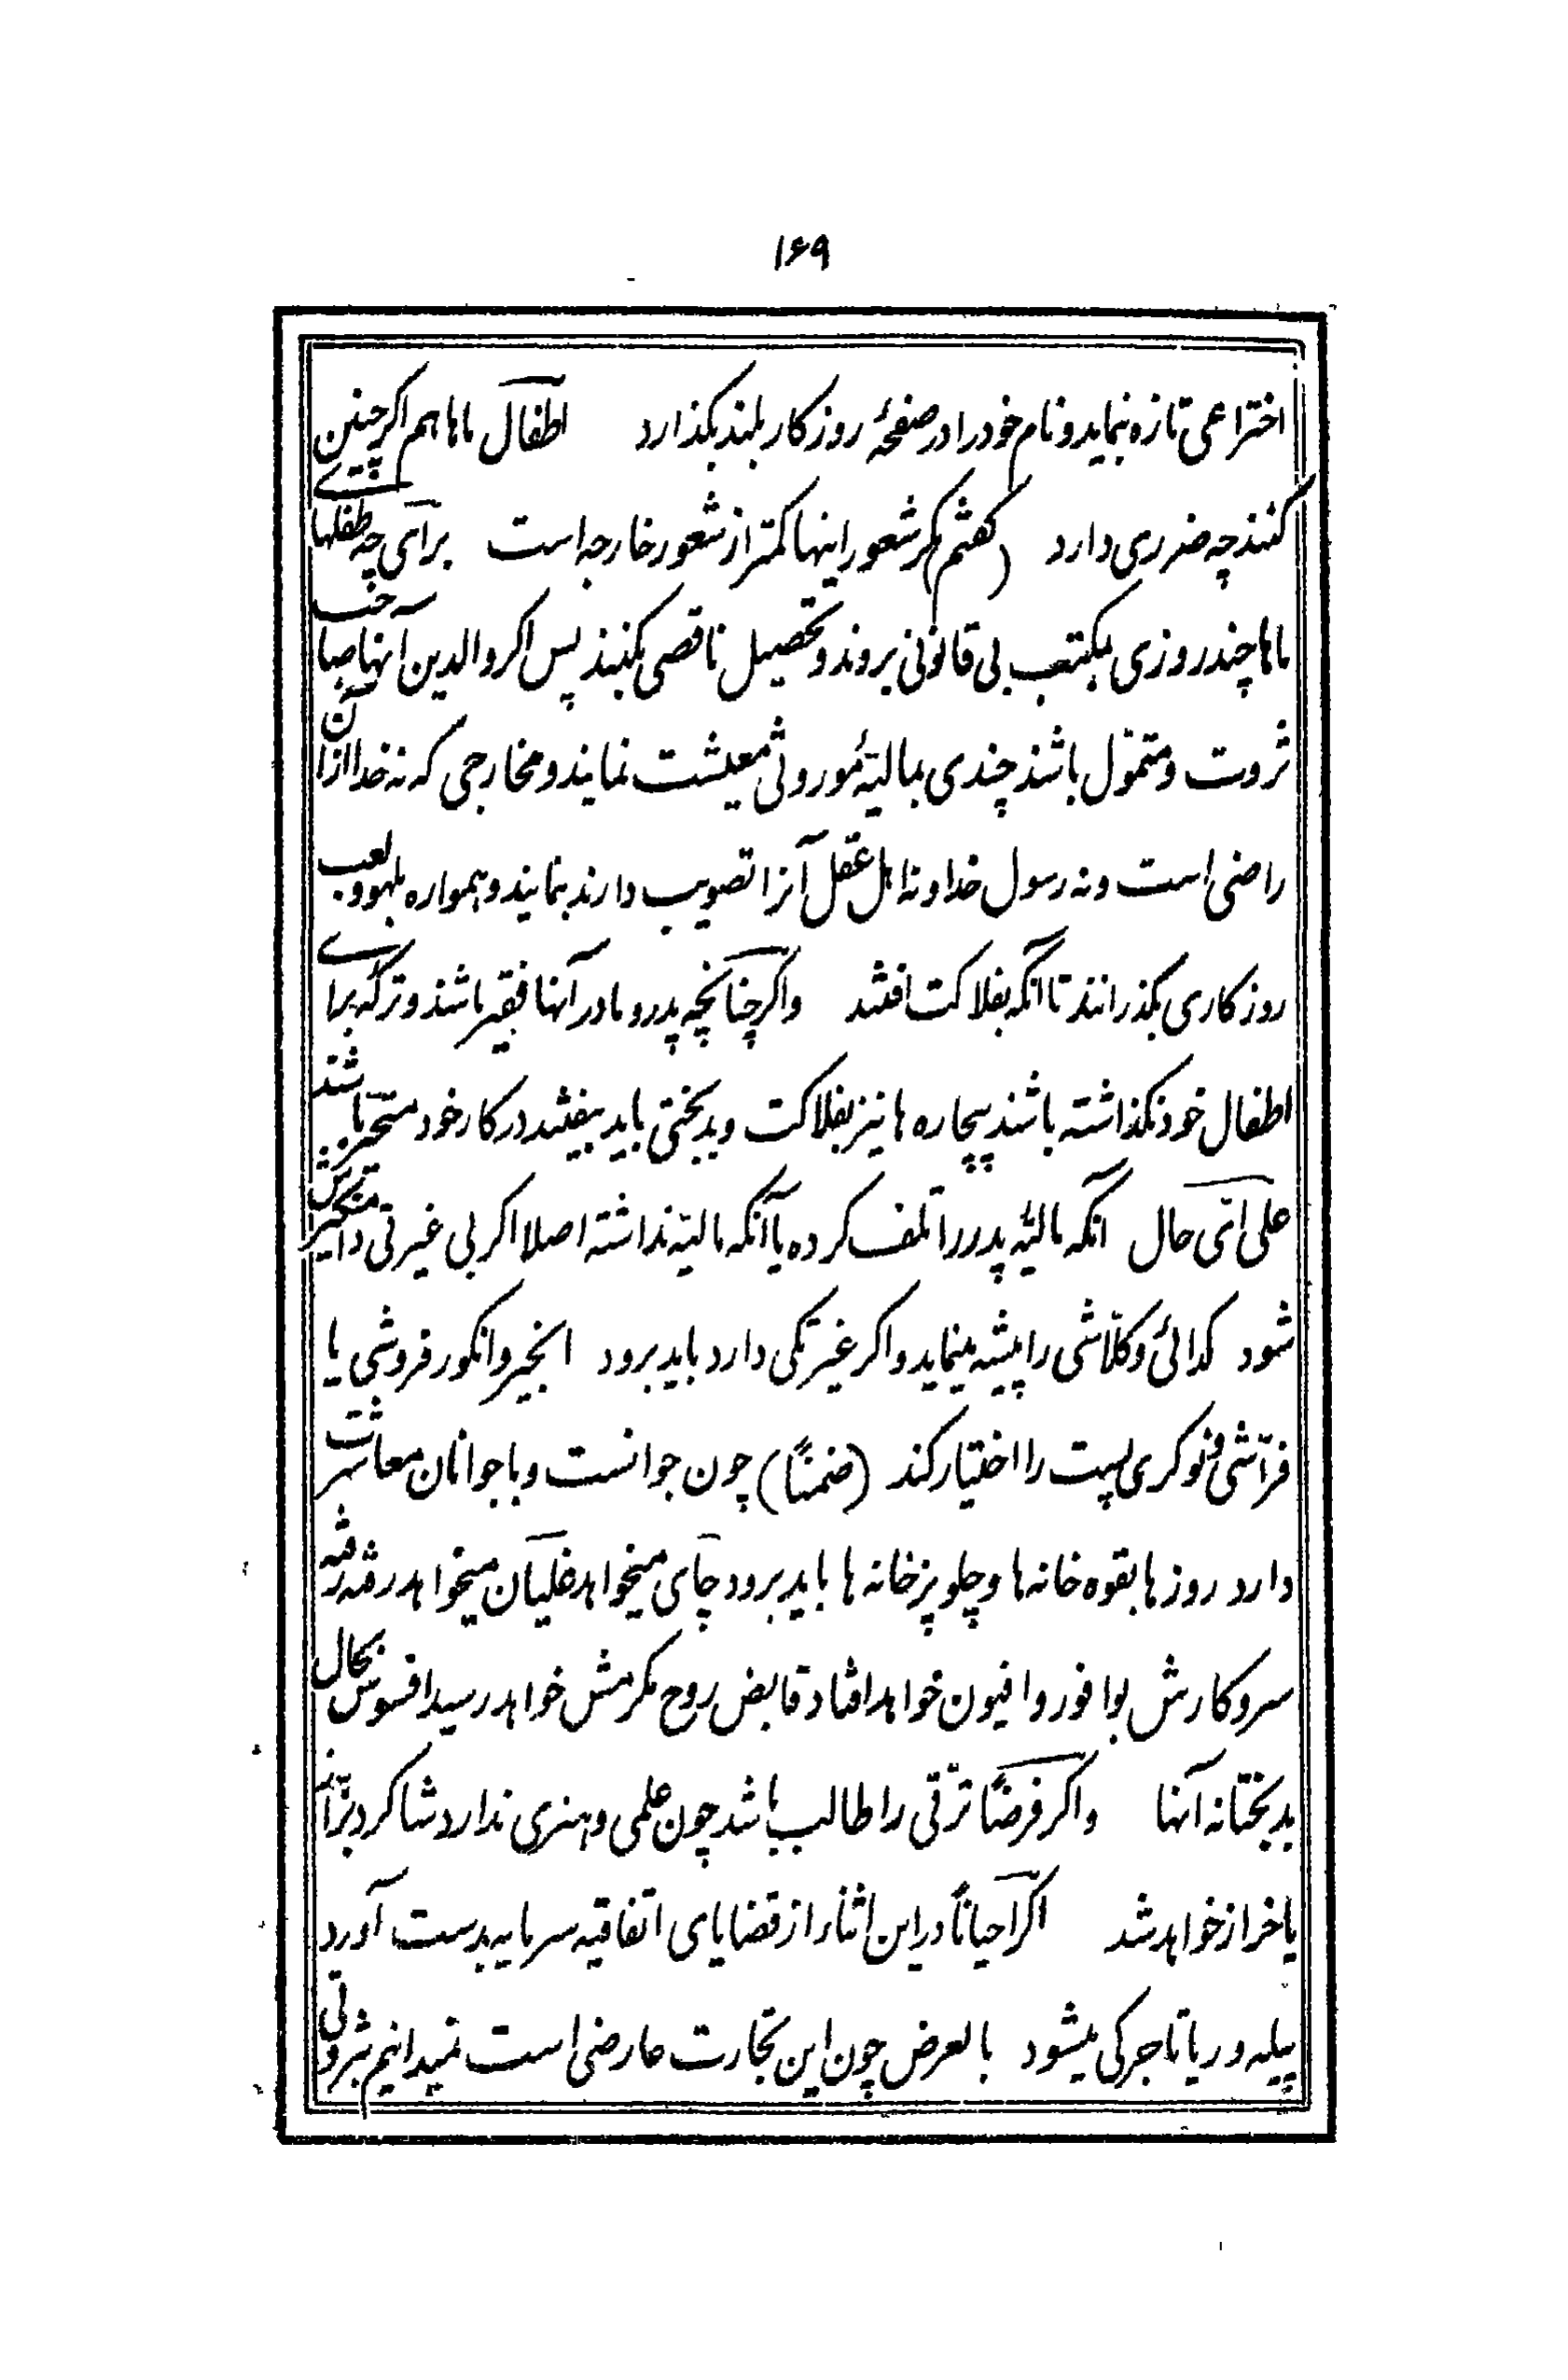 ۱۶۹
اختراعی تازه بنماید و نام خود را در صفحهٔ روزکار بلند بکذارد اطفال ماها هم اکر چنین
کنند چه ضرری دارد (کفتم) مکر شعور اینها کمتر از شعور خارجه است برای چه طفلهای
ماها چند روزی بمکتب بی قانونی بروند و تحصیل ناقصی بکنند پس اکر والدین آنها صاحب
ثروت و متموّل باشند چندی بمالیّهٔ موروثی معیشت نمایند و مخارجی که نه خدا از آن
راضی است و نه رسول خدا و نه اهل عقل آنرا تصویب دارند بنمایند و همواره بلهو و لعب
روزکاری بکذرانند تا انکه بفلاکت افتند و اکر چنانچه پدر و مادر آنها فقیر باشند و ترکه برای
اطفال خود نکذاشته باشند بیچاره ها نیز بفلاکت و بدبختی باید بیفتند در کار خود متحیّر باشند
علی ایّ حال انکه مالیّهٔ پدر را تلف کرده یا آنکه مالیّه نداشته اصلا اکر بی غیرتی دامنکیرش
شود کدائی و کلّاشی را پیشه مینماید و اکر غیرتکی دارد باید برود انجیر و انکور فروشی یا
فرّاشی و نوکری پست را اختیار کند (ضمناً) چون جوانست و با جوانان معاشرت
دارد روزها بقهوه خانه ها و چلو پز خانه ها باید برود چای میخواهد غلیان میخواهد رفته رفته
سر و کارش بوافور و افیون خواهد افتاد قابض روح مکرمش خواهد رسید افسوس بحال
بدبختانه آنها و اکر فرضاً ترقّی را طالب باشد چون علمی و هنری ندارد شاکرد بزّاز
یا خرّاز خواهد شد اکر احیاناً در این اثناء از قضایای اتفاقیه سرمایه بدست آورد
پیله ور یا تاجرکی میشود بالعرض چون این تجارت عارضی است نمیدانیم بثروتی